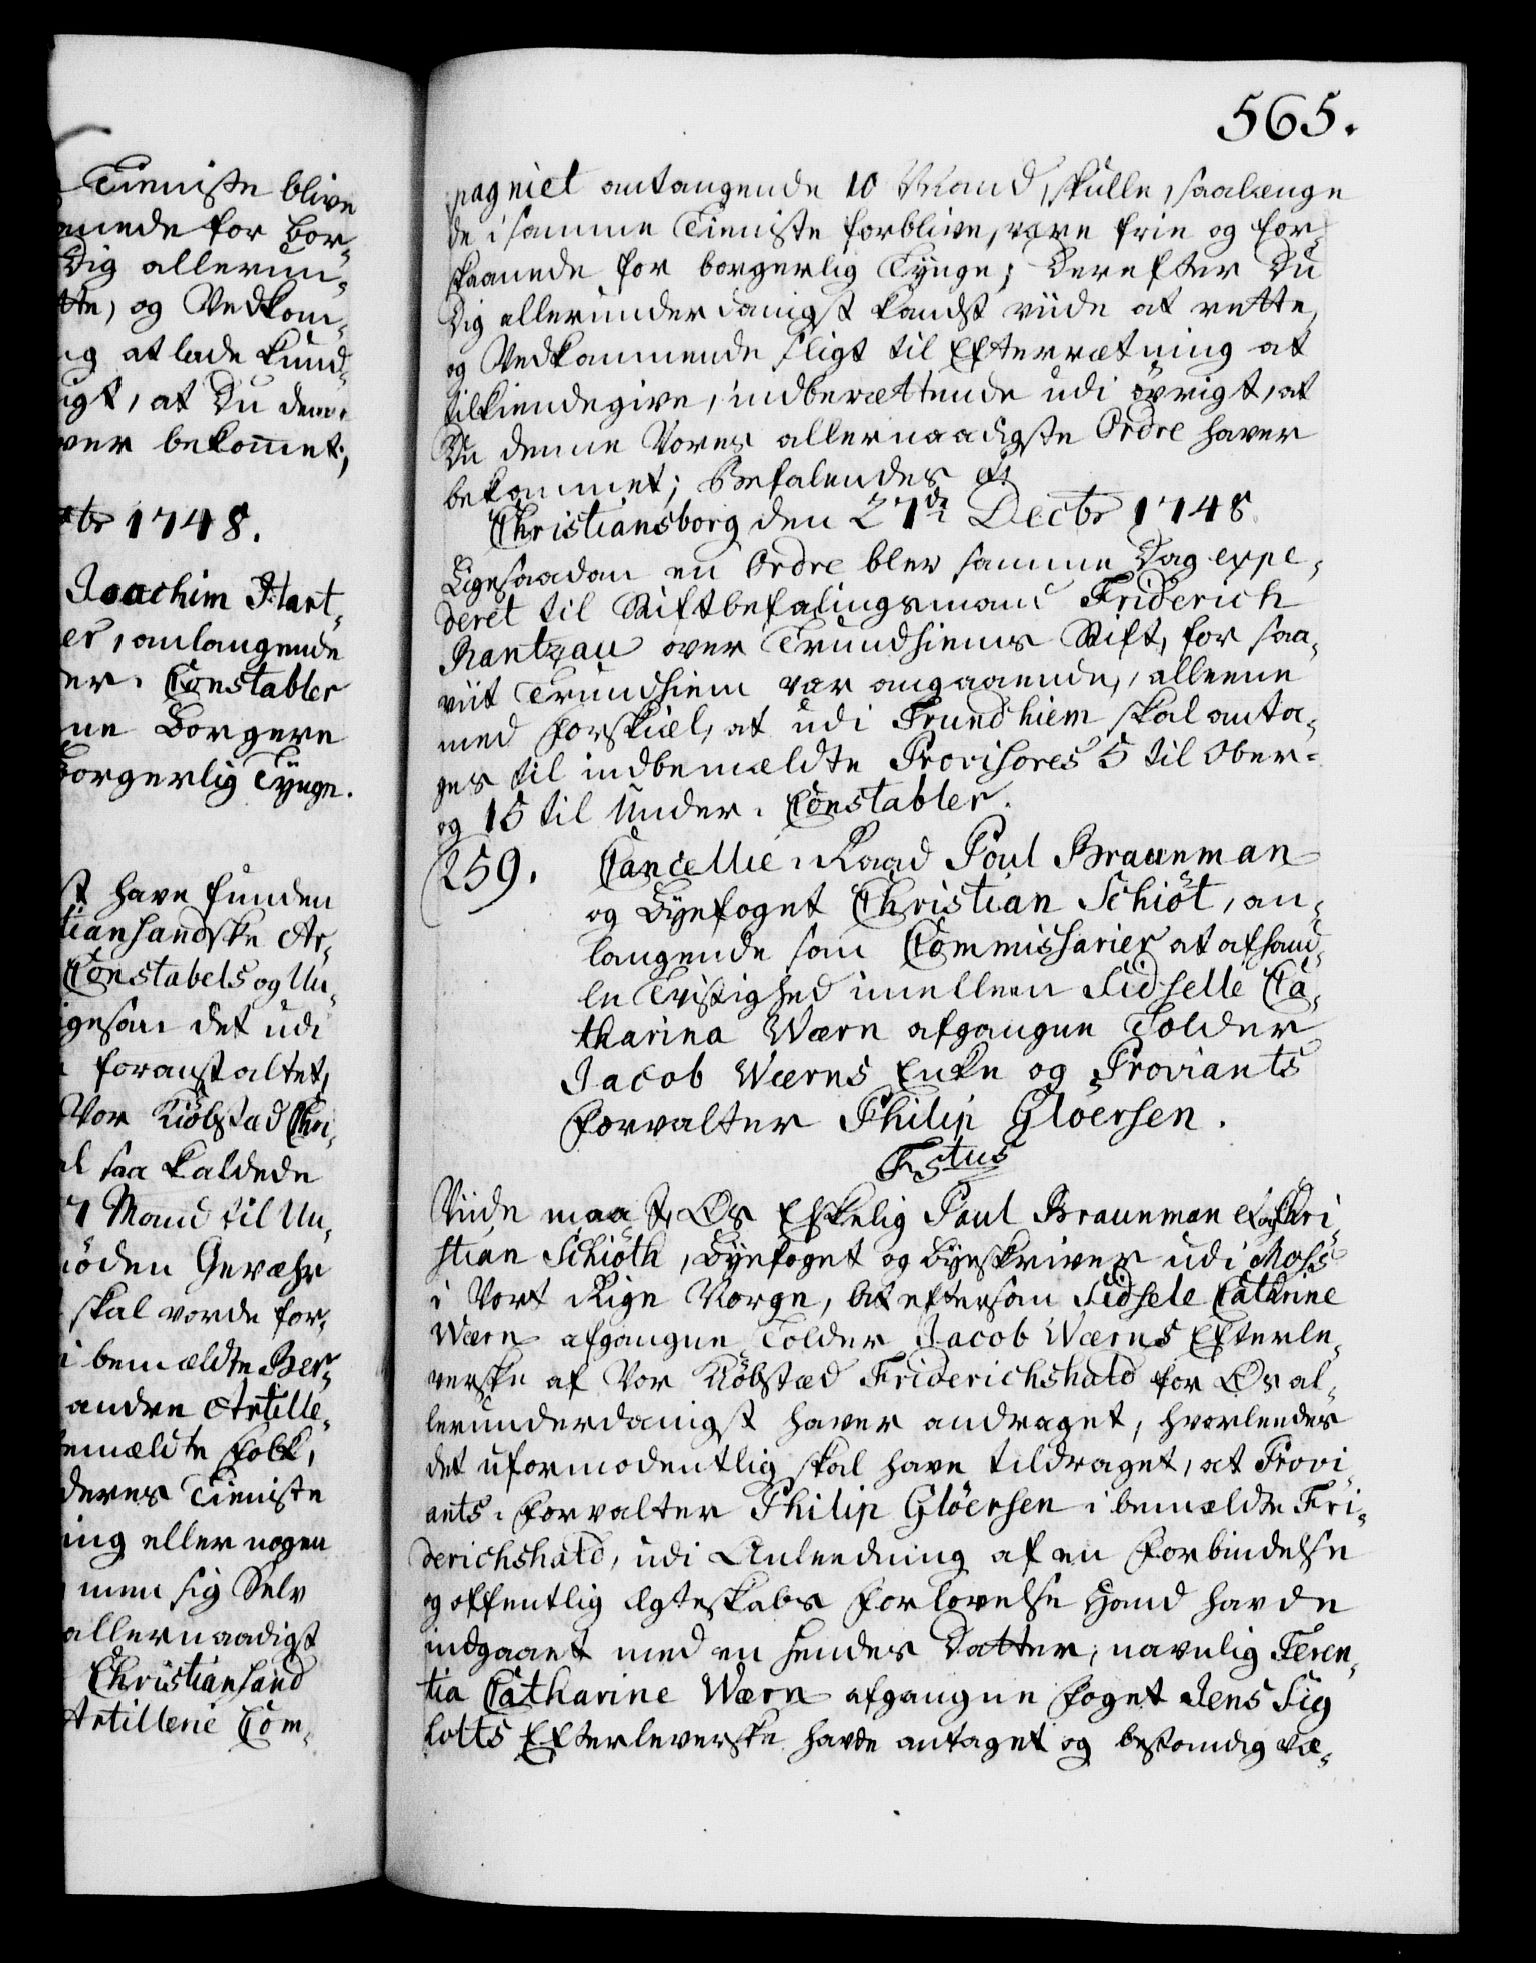 Tieniste blive
anede for bor-
Dig allerun-
tte, og Vedkom-
ig at lade kund-
igt, at Du denne
ver bekomet;
ctbr 1748.
Joachim Hart-
er, anlangende
er-Constabler
ne Borgere
borgerlig Tynge.
st have funden
tiansandske Ar-
Constabels og Un-
igesom det udi
foranstaltet,
Vor Kiöbstad Chri-
al saa kaldede
7 Mand til Un-
öden Gevæhr
skal vorde for-
i bemældte Ber-
andre Artille-
bemældte Folk,
deres Tieniste
ing eller nogen
men sig Selv
allernaadigst
Christiansand
Artillerie Com-
565.
pagniet antangende 10 Mand, skulle, saalænge
de i samme Tieniste forblive, være frie og for-
skaanede for borgerlig Tynge; Derefter Du
Dig allerunderdanigst kandst viide at rette,
og Vedkommende sligt til Efterretning at
tilkiendegive, indberettende udi övrigt, at
Du denne Vores allernaadigste Ordre haver
bekommet; Befalendes etc
Christiansborg den 27de Dectbr 1748.
Ligesaadan en Ordre blev samme Dag expe-
deret til Stiftbefalingsmand Friderich
Rantzau over Trundhiems Stift, for saa-
viit Trundhiem var angaaende, alleene
med Forskiæl, at udi Trundhiem skal anta-
ges til indbemældte Provisores 5 til Ober-
og 15 til Under-Constabler.
259. Cancellie-Raad Poul Braunman
og Byefoget Christian Schiöt, an-
langende som Commissarier at afhand-
le Tvistighed imellem Sidselle Ca-
tharina Wærn afgangne Tolder
Jacob Wærns Enke og Proviants
Forvalter Philip Glöersen.
Fstus
Viide maa I, Os Elskelig Paul Braunman og Chri-
stian Schiöth, Byefoget og Byeskriver udi Moss
i Vort Rige Norge, at eftersom Sidsele Cathrine
Wærn afgangne Tolder Jacob Wærns Efterle-
verske af Vor Kiöbstæd Friderichshald for Os al-
lerunderdanigst haver andraget, hvorledes
det uformodentlig skal have tildraget, at Provi-
ants-Forvalter Philip Glöersen i bemældte Fri-
derichshald, udi Anleedning af en Forbindelse
og offentlig Ægteskabs Forlovelse Hand havde
indgaaet med en hendes Datter, navnlig Teren-
tia Catharine Wærn afgangne Foget Jens Sig
holts Efterleverske havde antaget og bestandig væ-